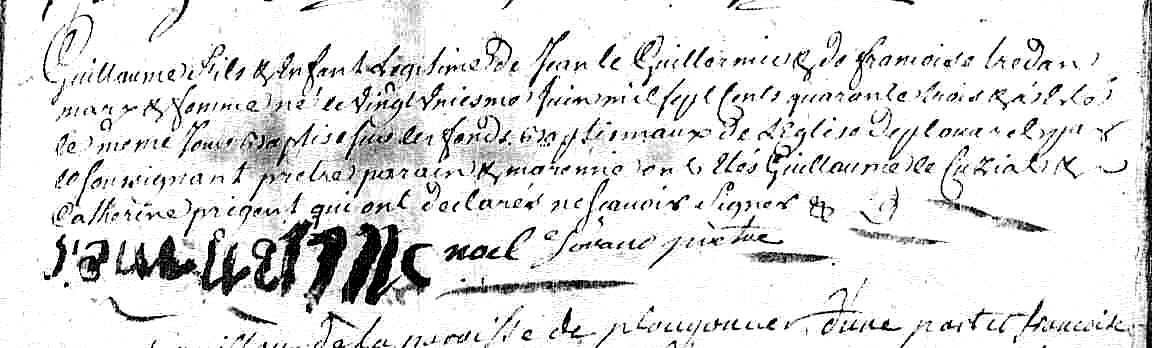 Guillaume fils & Enfant Legitime de Jean le Guillormic & de francoise tredan
mary & femme né le vingt uniesme Juin mil sept cents quarante trois & a esté
le meme Jour Baptisé sur les fonds Baptismaux de L'Eglise de plouar par
le Sousignant prêtre parain & marenne ont Estés Guillaume le Cuziat &
Catherine prigent qui ont declarés ne scavoir Signer &
noel prêtre
de la paroisse de plougonver d'une part et francoise